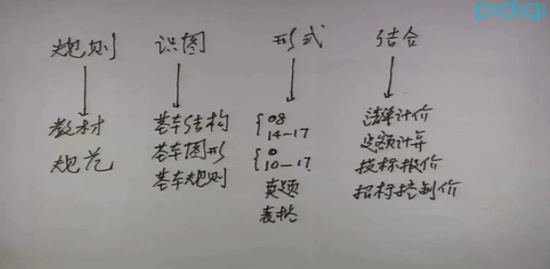 pidiqi
规则 识图 形式 结合
教材 基本结构 {08 清单计价
规范 基本图形 14-17 定额计算
基本规则 {0 投标报价
10-17 招标控制价
真题
表格